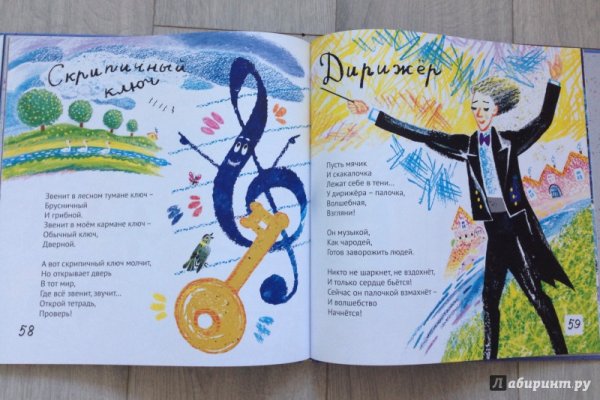 Скрипичный
ключ
Звенит в лесном тумане ключ –
Брусничный
И грибной.
Звенит в моём кармане ключ –
Обычный ключ,
Дверной.
А вот скрипичный ключ молчит,
Но открывает дверь
В тот мир,
Где всё звенит, звучит...
Открой тетрадь,
Проверь!
58
Дирижёр
Пусть мячик
И скакалочка
Лежат себе в тени...
У дирижёра – палочка,
Волшебная,
Взгляни!
Он музыкой,
Как чародей,
Готов заворожить людей.
Никто не шаркнет, не вздохнёт,
И только сердце бьётся!
Сейчас он палочкой взмахнёт –
И волшебство
Начнётся!
59
Лабиринт.ру